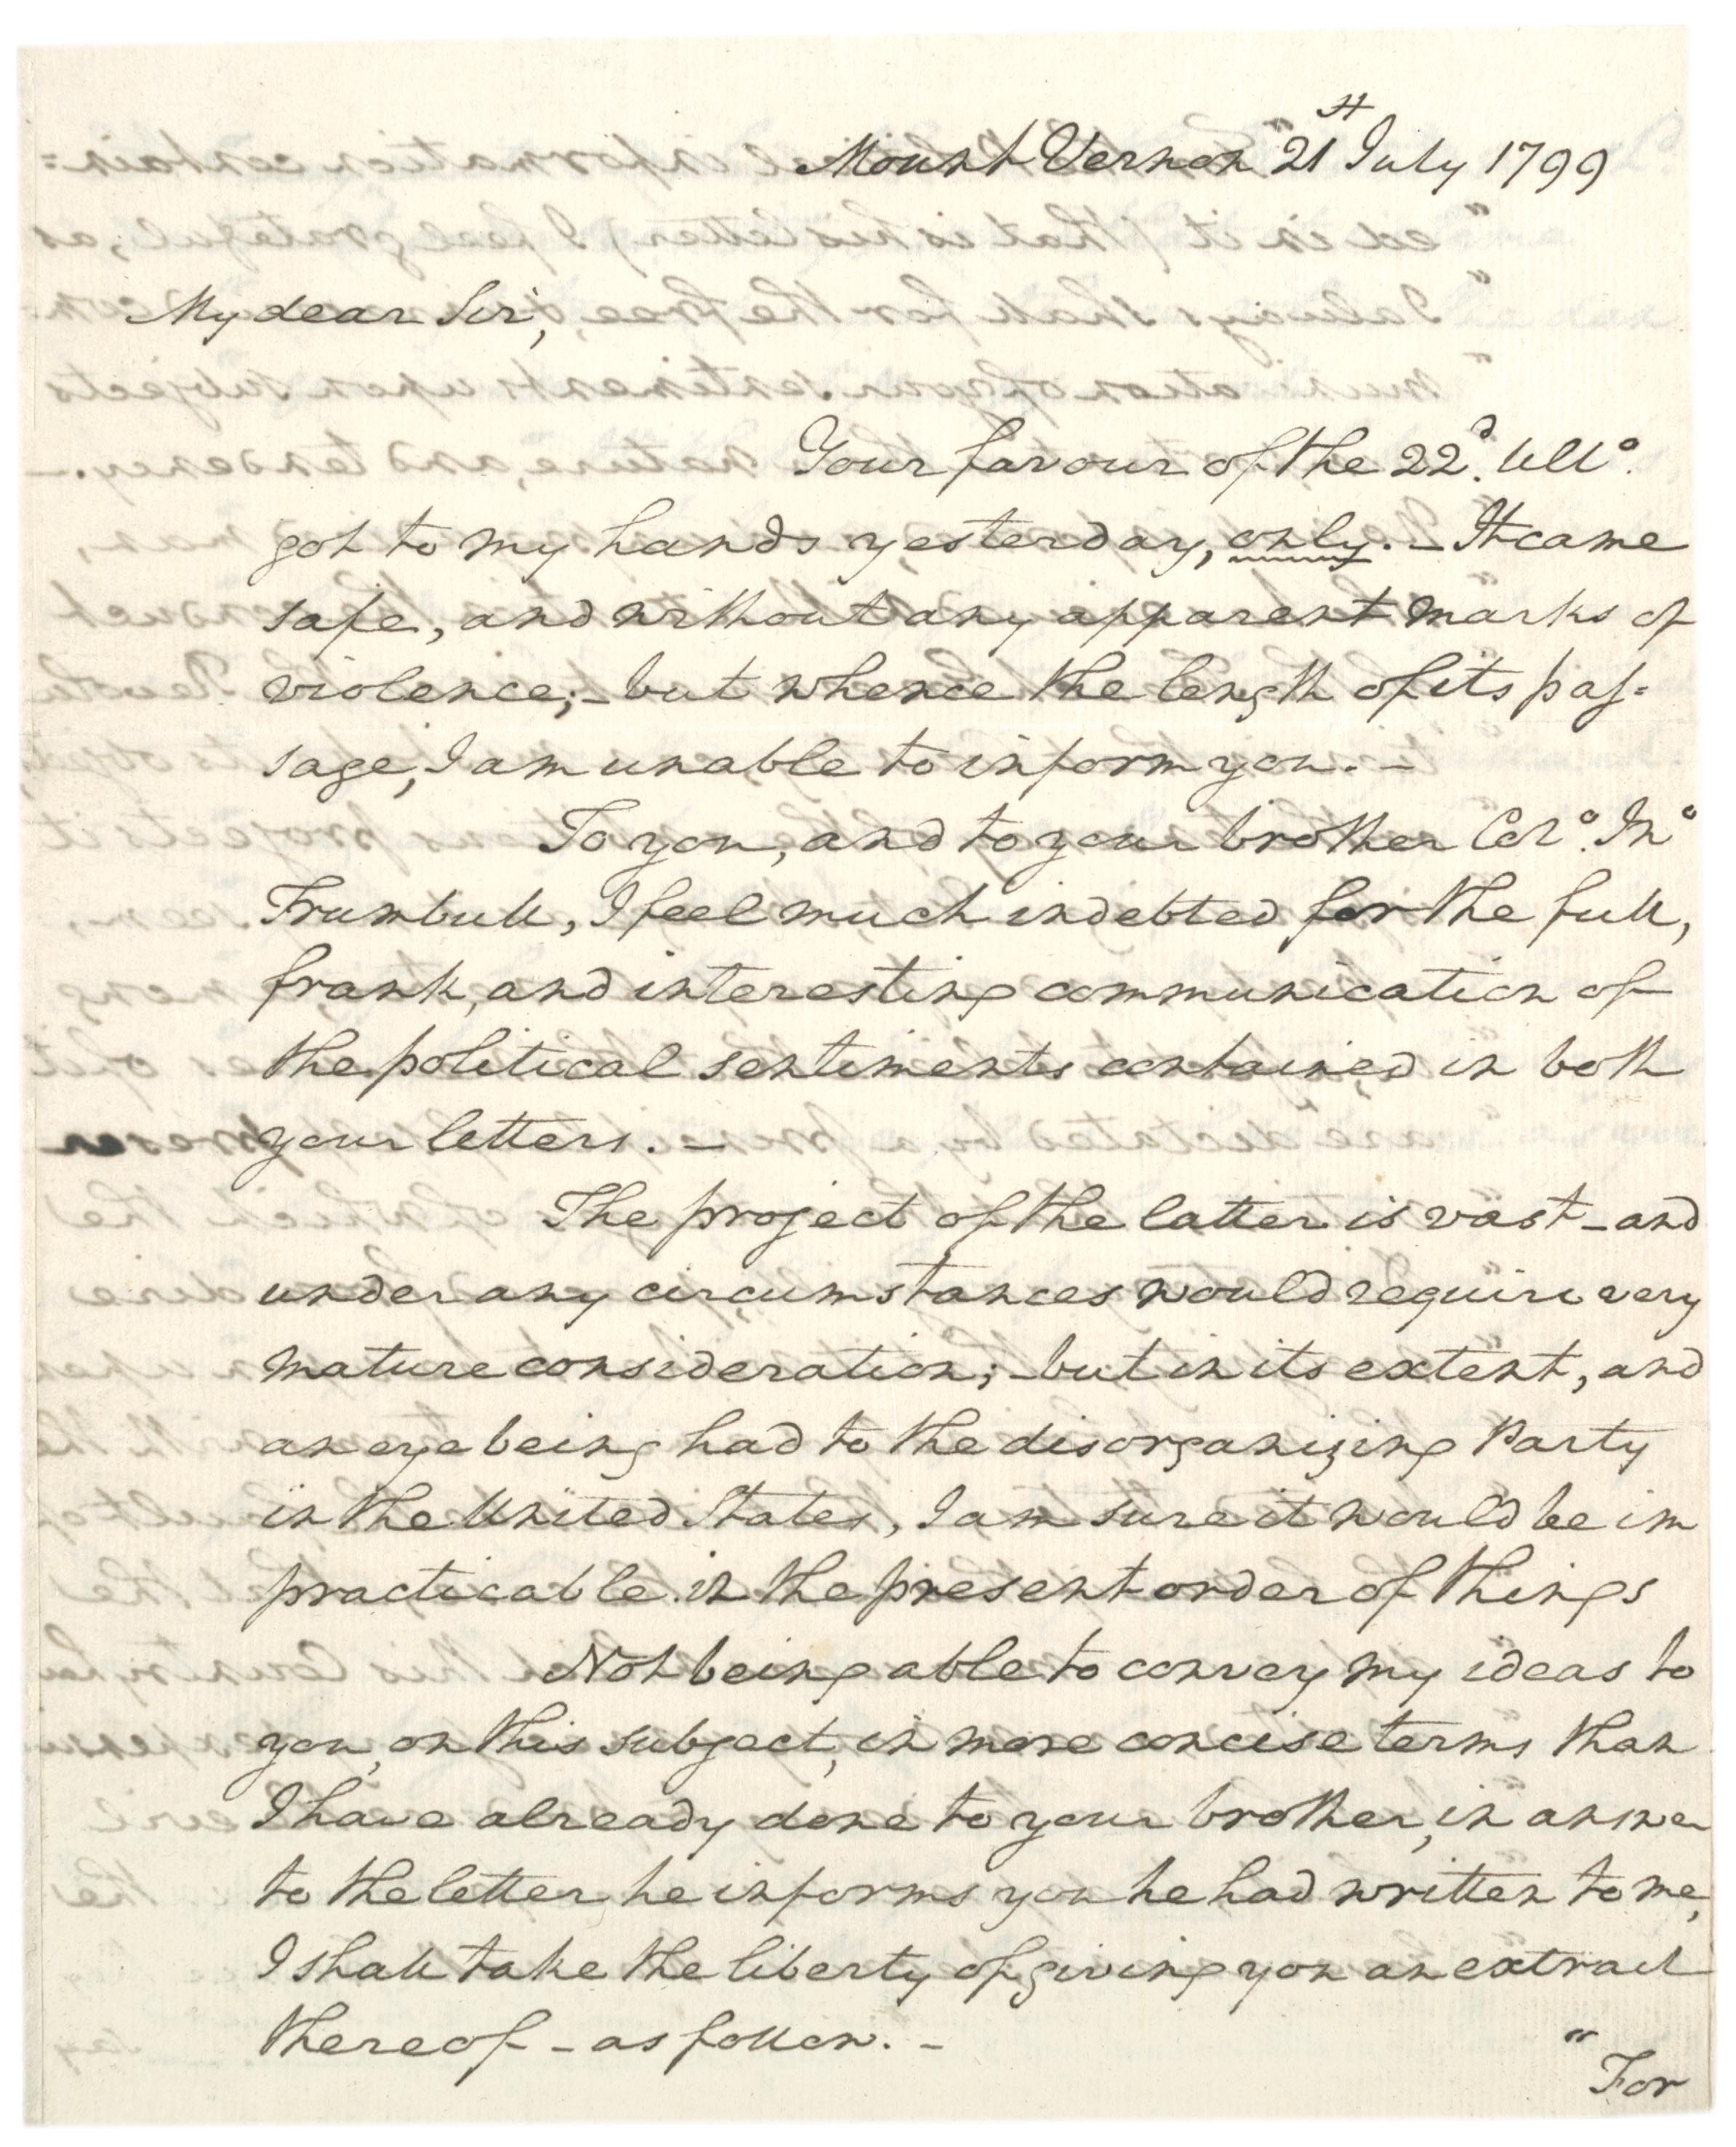 Mount Vernon 21st July 1799
My dear Sir,
Your favour of the 22d. Ullo.
got to my hands yesterday, only. – It came
safe, and without any apparent marks of
violence; – but whence the length of its pas-
sage, I am unable to inform you. –
To you, and to your brother Colo. Jno
Trumbull, I feel much indebted for the full,
frank, and interesting communication of
the political sentiments contained in both
your letters. –
The project of the latter is vast – and
under any circumstances would require very
mature consideration; – but in its extent, and
an eye being had to the disorganizing Party
in the United States, I am sure it would be im
practicable in the present order of things
Not being able to convey my ideas to
you, on this subject, in more concise terms than
I have already done to your brother, in answer
to the letter he informs you he had written to me,
I shall take the liberty of giving you an extract
thereof – as follow. –
"For